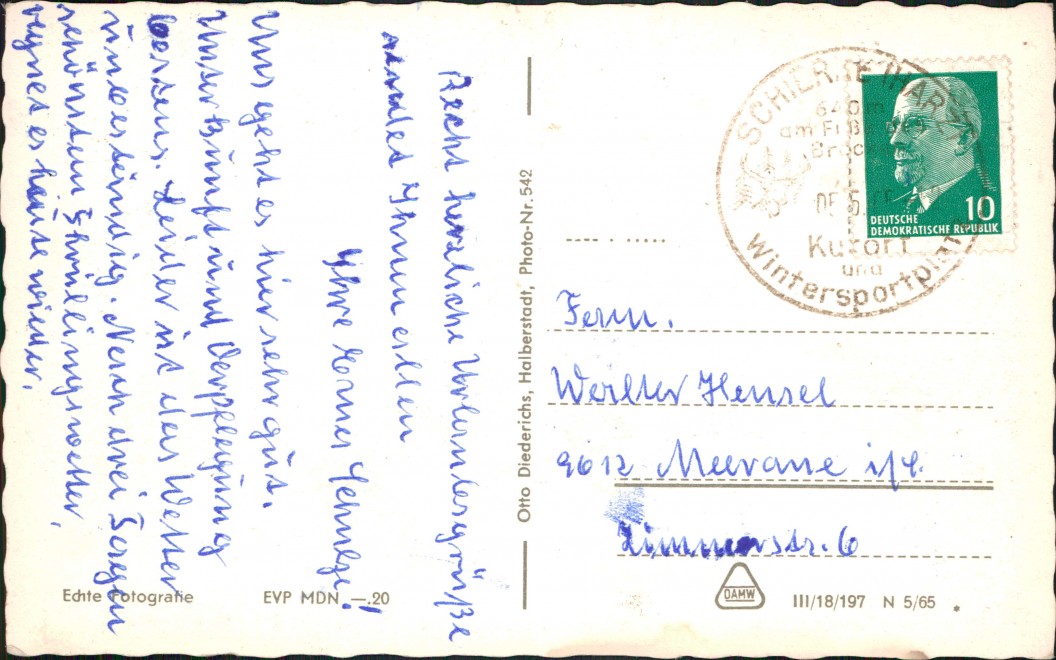 Recht herzliche Urlaubsgrüße
sendet Ihnen allen
Ihre Schulze!
Uns geht es hier sehr gut.
Unterkunft und Verpflegung
bestens. Leider ist das Wetter
unbeständig. Nach drei Tagen
schönstem Frühlingswetter,
regnet es heute wieder.
Echte Fotografie
EVP MDN —.20
Otto Diederichs, Halberstadt, Photo-Nr. 542
SCHIERKE/HARZ
640 m
am Fuße
Kurort
und
Wintersportplatz
10
DEUTSCHE
DEMOKRATISCHE REPUBLIK
Fam.
Walter Hensel
9612 Meerane i/S.
Zimmerstr. 6
DAMW
III/18/197 N 5/65